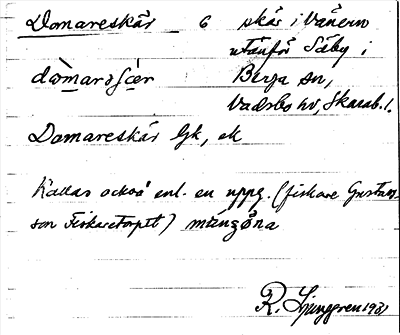 Domareskär 6 skär i Vänern
utanför Säby i
dòmarəʃcær Berga sn,
Vadsbo hd, Skarab. l.
Domareskär Gk, ek
Kallas också enl. en uppg. (fiskare Gustafs-
son Fiskaretorpet) mångöna
R. Ljunggren 1931